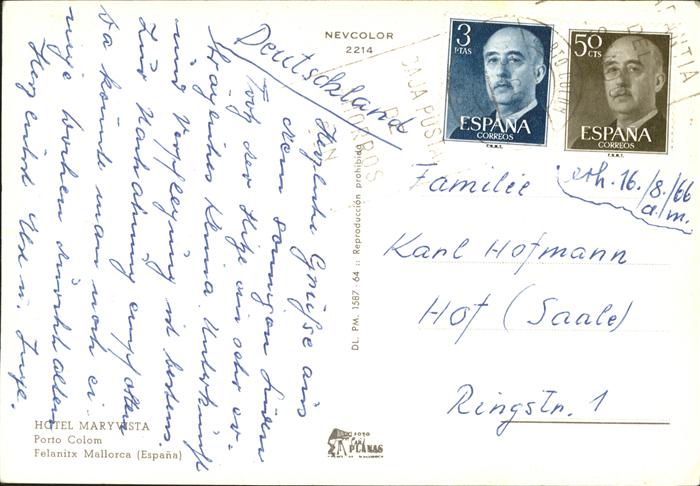 NEVCOLOR
2214
Deutschland
Herzliche Grüße aus
dem sonnigen Süden
Trotz der Hitze ein sehr er-
trägliches Klima. Unterkunft
und Verpflegung ist bestens
Zur Nachahmung empfohlen
Da könnte man noch ei-
nige Wochen durchhalten
Herzlichst Ilse u.
3
PTAS
ESPAÑA
CORREOS
F.N.M.T.
50
CTS
ESPAÑA
CORREOS
F.N.M.T.
CORREOS
erh. 16./8./66
a/m.
Familie
Karl Hofmann
Hof (Saale)
Ringstr. 1
DL. PM. 1587 - 64 :: Reproducción prohibida
HOTEL MARYVISTA
Porto Colom
Felanitx Mallorca (España)
FOTO
PLANAS